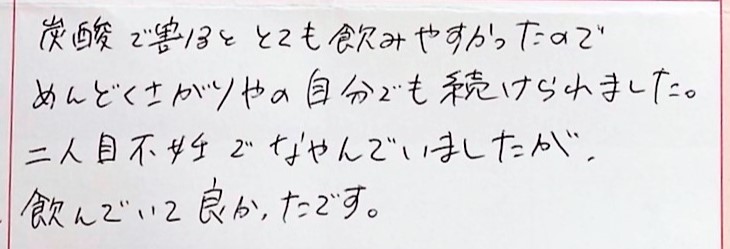 炭酸で割るととても飲みやすかったので
めんどくさがりやの自分でも続けられました。
二人目不妊でなやんでいましたが、
飲んでいて良かったです。